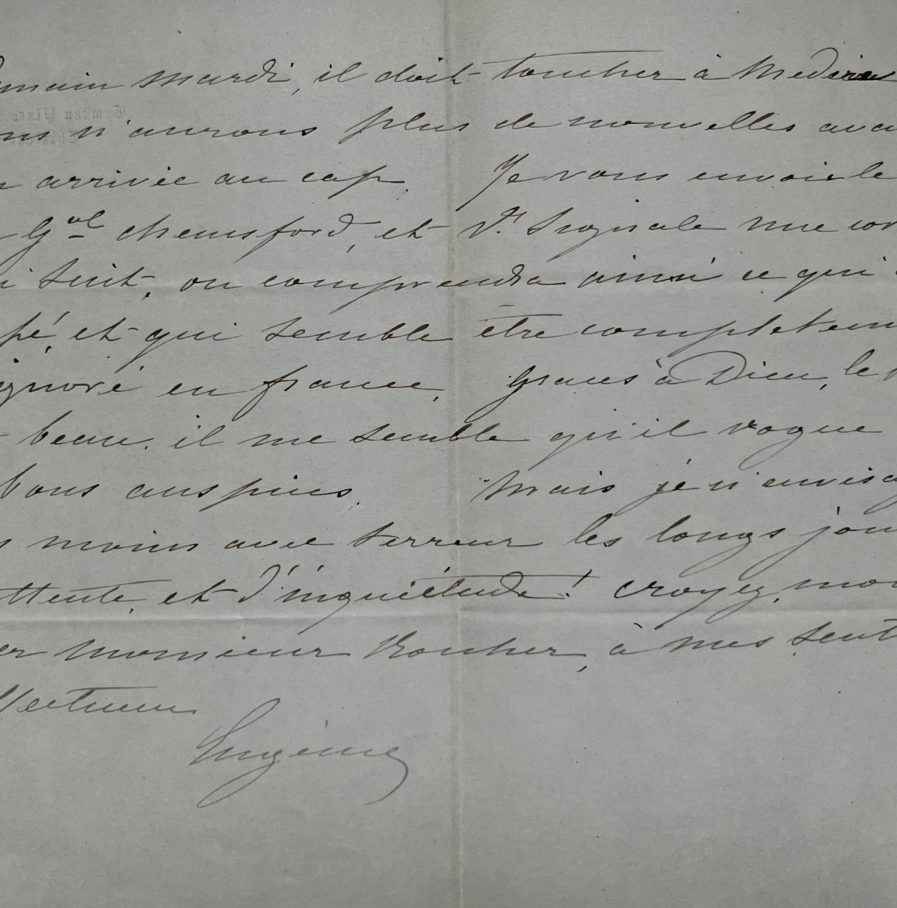 main mardi, il doit toucher à Medira
ns n'aurons plus de nouvelles ava
n arrivée au cap. Je vous envoie le
Gal chemsford, et Sr. signale une cor
i suit, on comprendra ainsi ce qui
pé, et qui semble être completem
ignoré en france. Graces à Dieu, le
beau. il me semble qu'il vogue
bons auspices. Mais je n'envisag
s moins avec terreur les longs jou
ttente, et d'inquiétude! croyez, mon
er monsieur Rouher, à mes sent
ffectueux
Eugénie